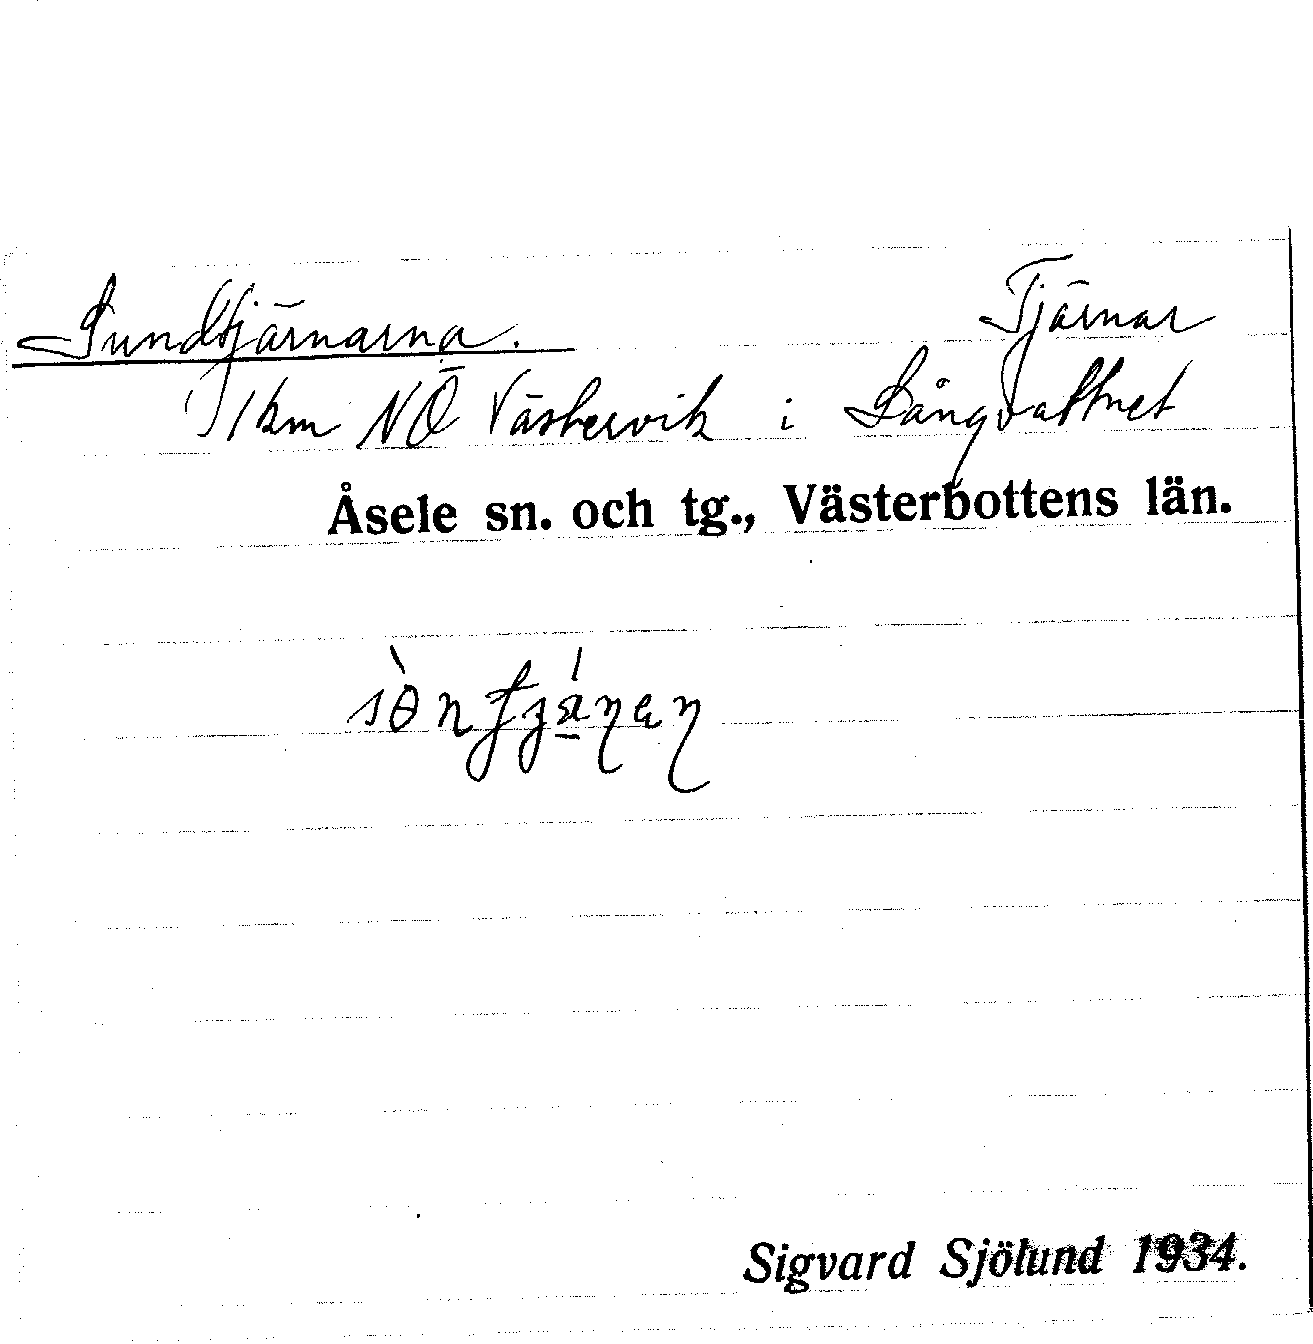 Sundtjärnarna. Tjärnar
1 km NÖ Västervik i Långvattnet
Åsele sn. och tg., Västerbottens län.
Sigvard Sjölund 1934.